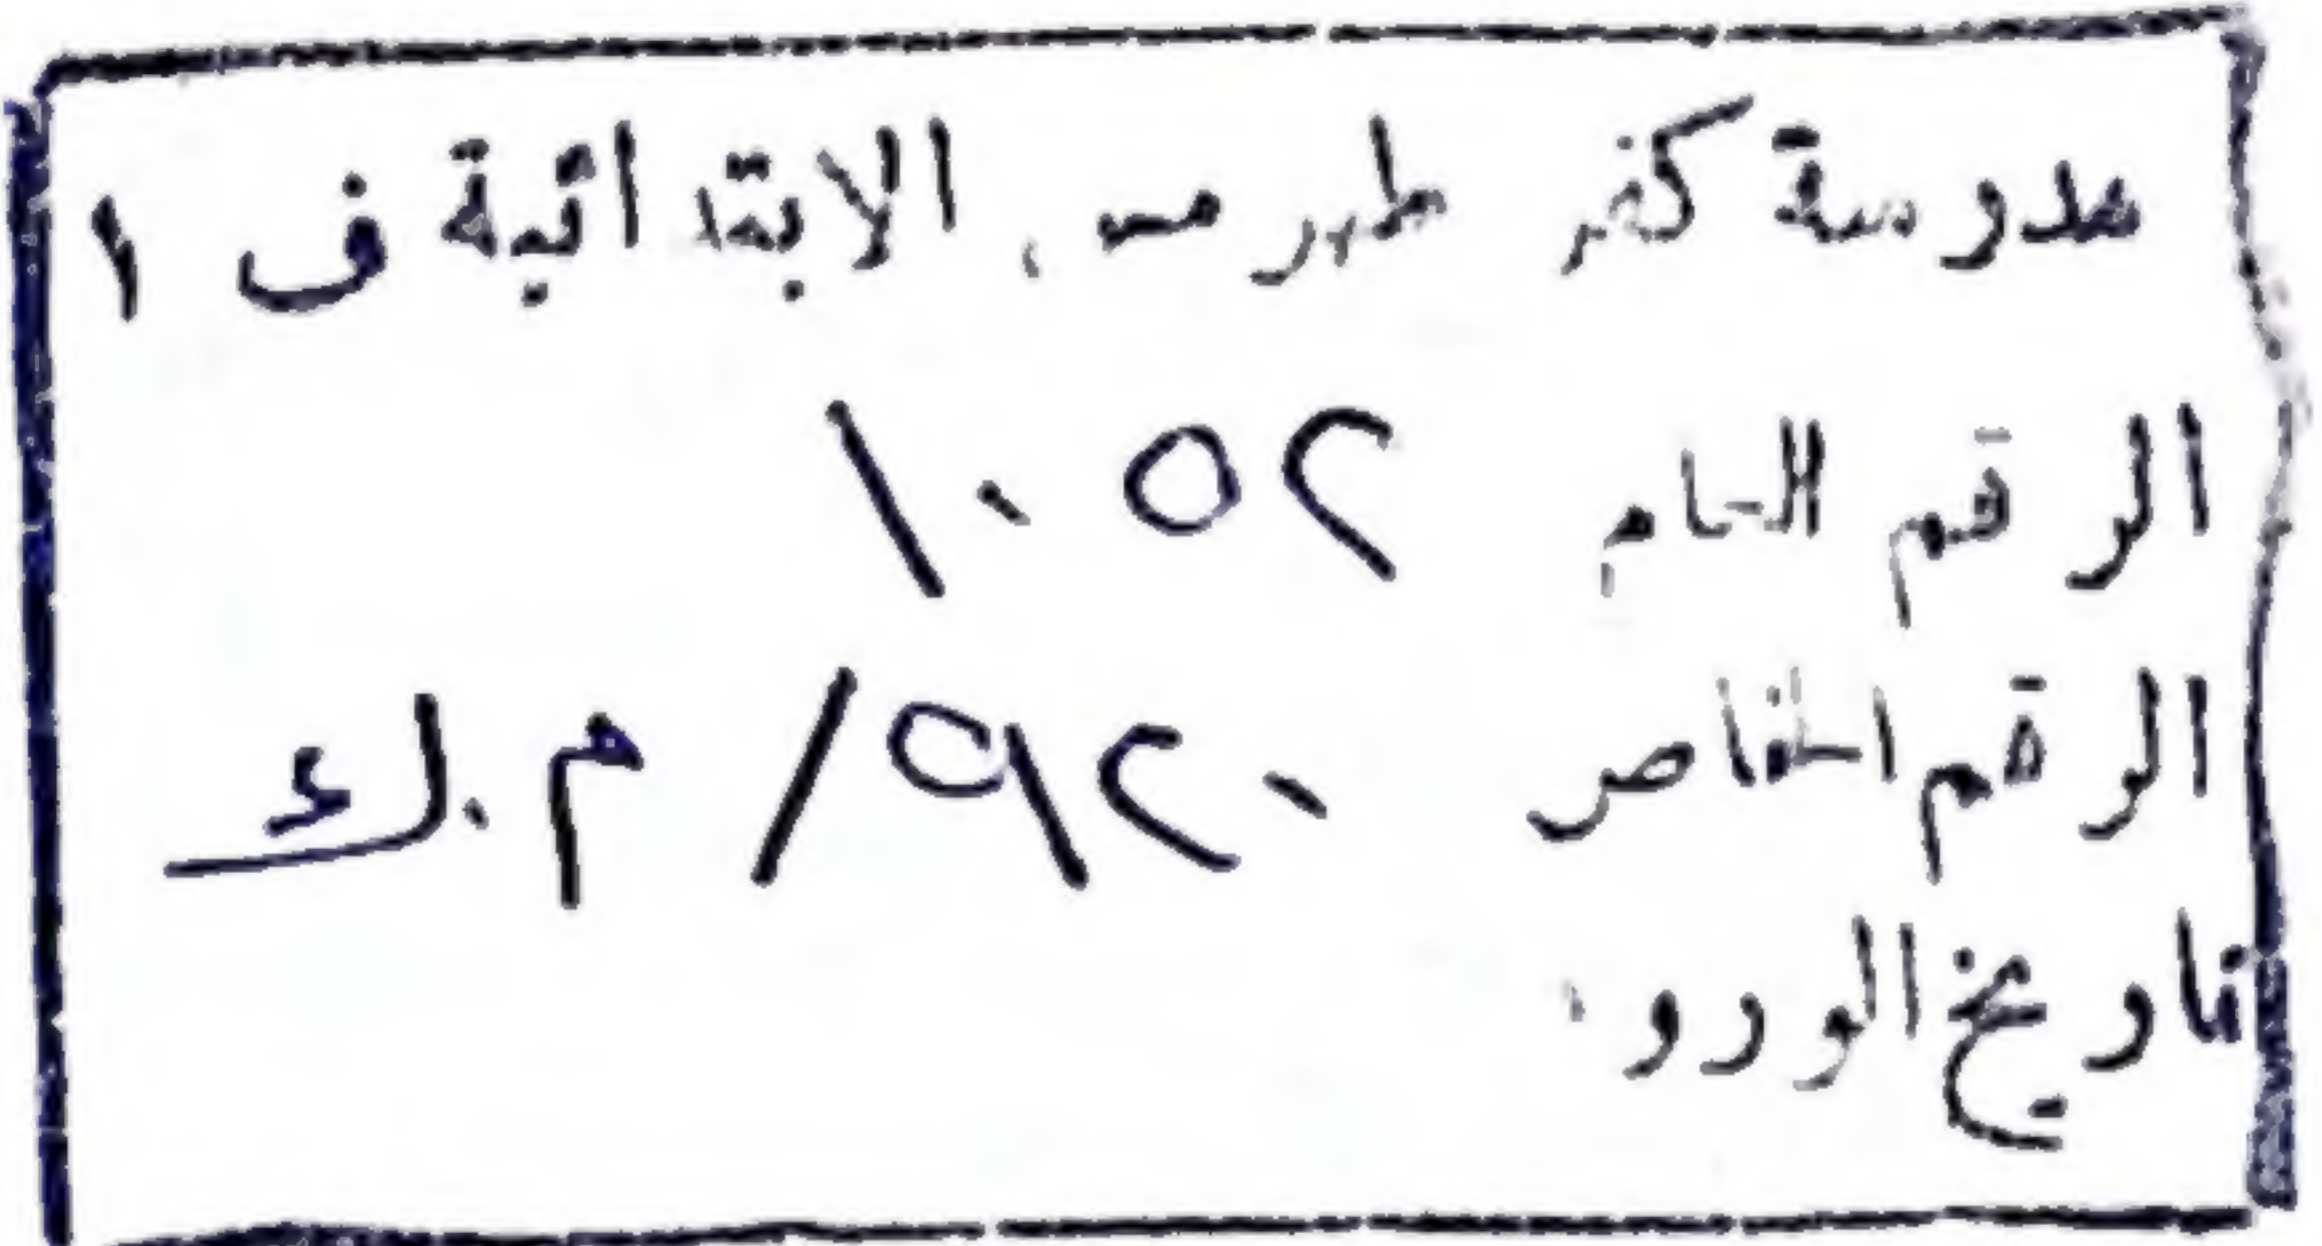 مدرسة كفر طهرمس الابتدائية ف ١
الرقم العام ١٠٥٢
الرقم الخاص ٩٢٠ / م.ك
تاريخ الورود